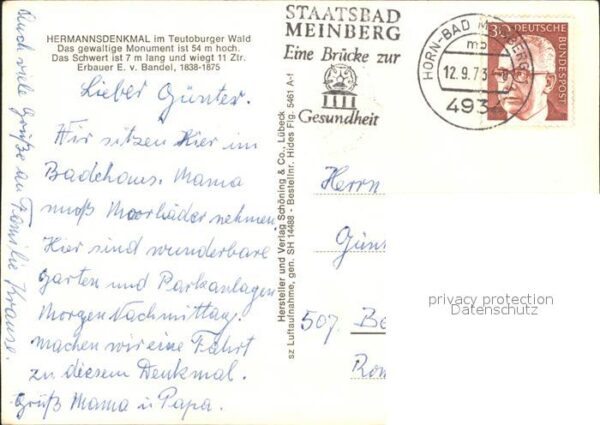 HERMANNSDENKMAL im Teutoburger Wald
Das gewaltige Monument ist 54 m hoch.
Das Schwert ist 7 m lang und wiegt 11 Ztr.
Erbauer E. v. Bandel, 1838-1875
Lieber Günter.
Wir sitzen hier im
Badehaus. Mama
muß Moorbäder nehmen.
Hier sind wunderbare
Garten und Parkanlagen
Morgen Nachmittag
machen wir eine Fahrt
zu diesem Denkmal.
Gruß Mama u Papa.
Auch viele Grüße an Familie Krause.
Hersteller und Verlag Schöning & Co., Lübeck
sz Luftaufnahme, gen. SH 14488 - Bestellnr. Hides Flg. 5461 A-1
STAATSBAD
MEINBERG
Eine Brücke zur
Gesundheit
HORN-BAD MEINBERG
mb
12.9.73
493
30
DEUTSCHE
BUNDESPOST
Herrn
Gün
507. Be
Rom
privacy protection
Datenschutz